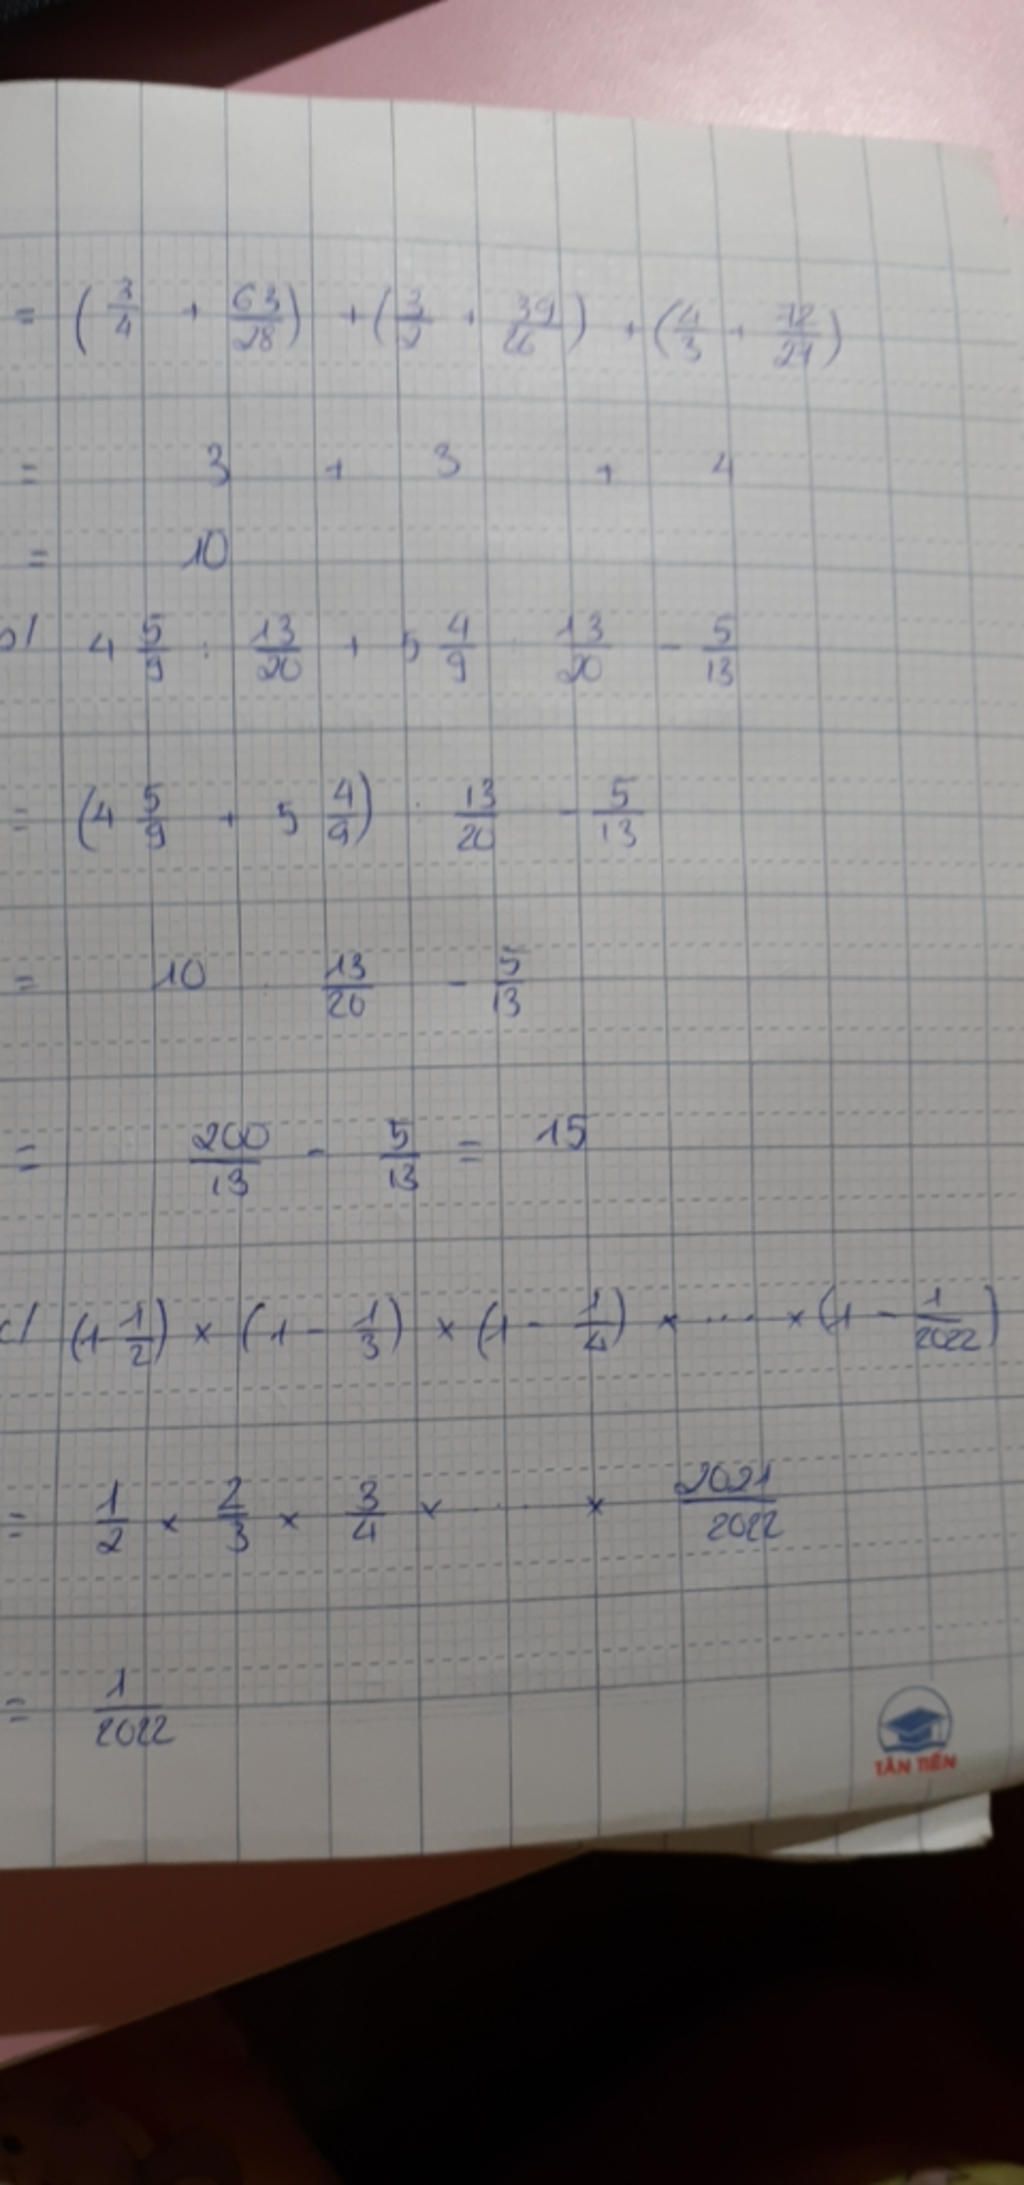 = (3/4 + 63/28) + (3/2 + 39/26) + (4/3 + 72/27)
= 3 + 3 + 4
= 10
b/ 4 5/9 : 13/20 + 5 4/9 : 13/20 - 5/13
= (4 5/9 + 5 4/9) : 13/20 - 5/13
= 10 : 13/20 - 5/13
= 200/13 - 5/13 = 15
c/ (1 - 1/2) × (1 - 1/3) × (1 - 1/4) × .... × (1 - 1/2022)
= 1/2 × 2/3 × 3/4 × .... × 2021/2022
= 1/2022
TÂN TIẾN